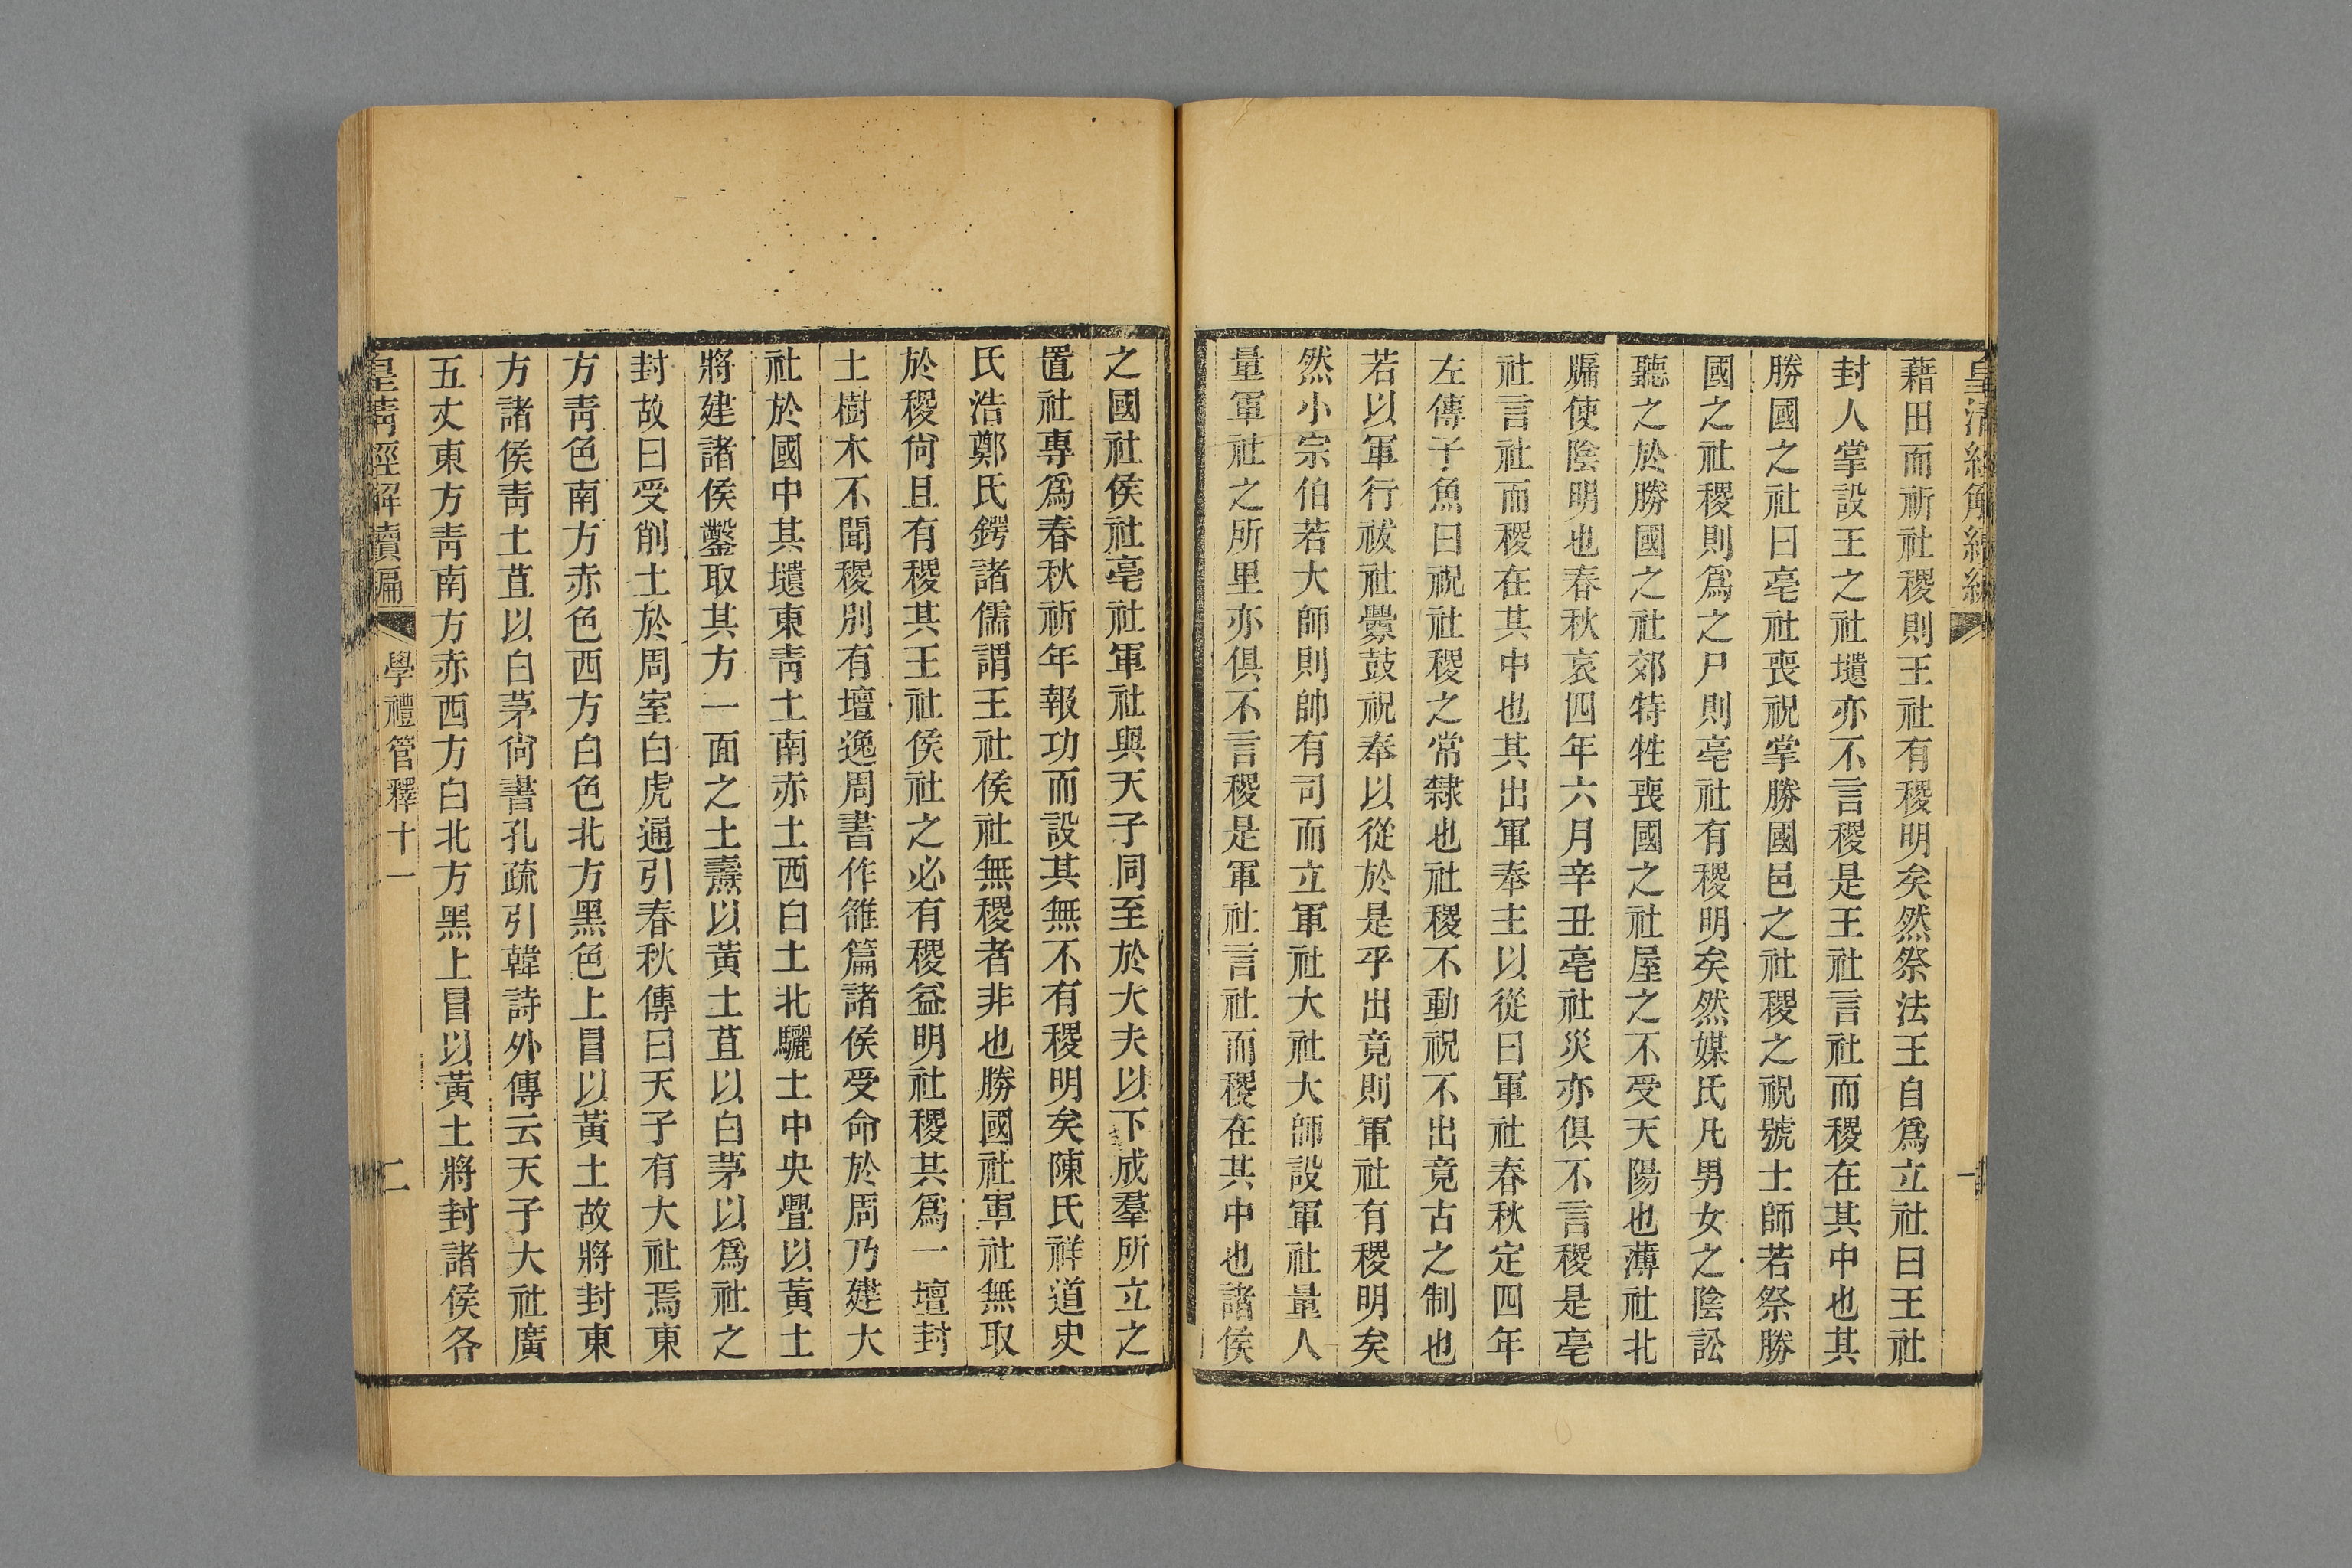 皇清經解續編
一
藉田而祈社稷則王社有稷明矣然祭法王自爲立社曰王社
封人掌設王之社壝亦不言稷是王社言社而稷在其中也其
勝國之社曰亳社喪祝掌勝國邑之社稷之祝號士師若祭勝
國之社稷則爲之尸則亳社有稷明矣然媒氏凡男女之陰訟
聽之於勝國之社郊特牲喪國之社屋之不受天陽也薄社北
牖使陰明也春秋哀四年六月辛丑亳社災亦俱不言稷是亳
社言社而稷在其中也其出軍奉主以從曰軍社春秋定四年
左傳子魚曰祝社稷之常隸也社稷不動祝不出竟古之制也
若以軍行祓社釁鼓祝奉以從於是乎出竟則軍社有稷明矣
然小宗伯若大師則帥有司而立軍社大社大師設軍社量人
量軍社之所里亦俱不言稷是軍社言社而稷在其中也諸侯
之國社侯社亳社軍社與天子同至於大夫以下成羣所立之
置社專爲春秋祈年報功而設其無不有稷明矣陳氏祥道史
氏浩鄭氏鍔諸儒謂王社侯社無稷者非也勝國社軍社無取
於稷尙且有稷其王社侯社之必有稷益明社稷其爲一壇封
土樹木不聞稷別有壇逸周書作雒篇諸侯受命於周乃建大
社於國中其壝東靑土南赤土西白土北驪土中央舋以黃土
將建諸侯鑿取其方一面之土燾以黃土苴以白茅以爲社之
封故曰受削土於周室白虎通引春秋傳曰天子有大社焉東
方靑色南方赤色西方白色北方黑色上冒以黃土故將封東
方諸侯靑土苴以白茅尙書孔疏引韓詩外傳云天子大社廣
五丈東方靑南方赤西方白北方黑上冒以黃土將封諸侯各
皇清經解續編
學禮管釋十一
二